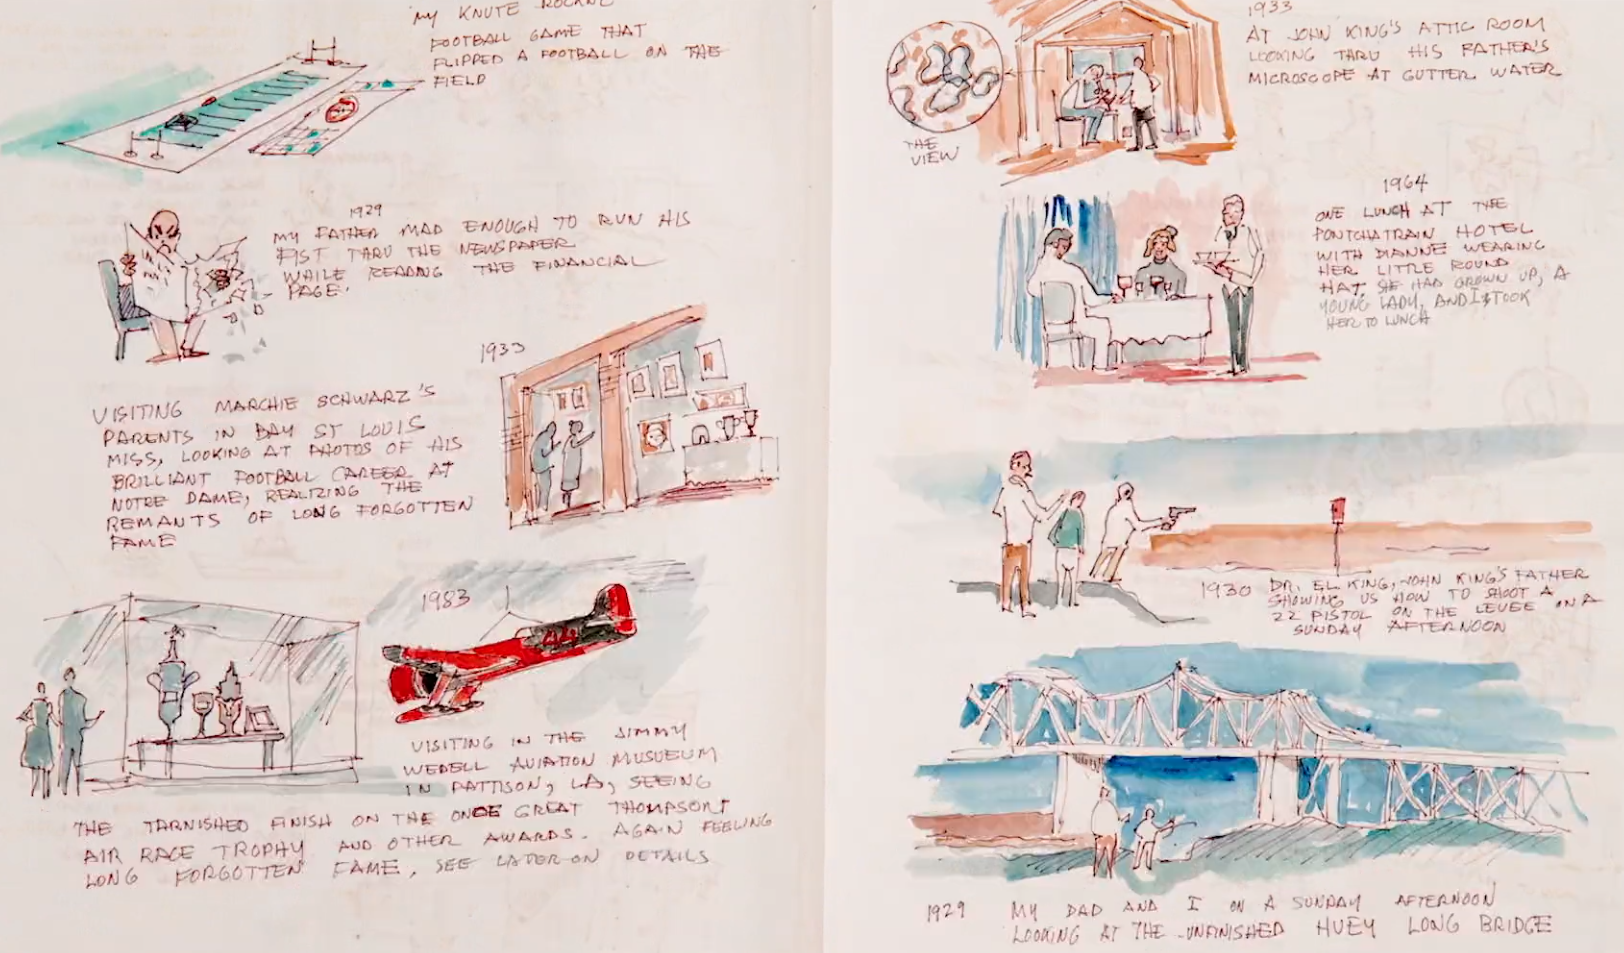 MY KNUTE ROCKNE
FOOTBALL GAME THAT
FLIPPED A FOOTBALL ON THE
FIELD
1929
MY FATHER MAD ENOUGH TO RUN HIS
FIST THRU THE NEWSPAPER
WHILE READING THE FINANCIAL
PAGE.
1933
VISITING MARCHIE SCHWARZ'S
PARENTS IN BAY ST LOUIS
MISS, LOOKING AT PHOTOS OF HIS
BRILLIANT FOOTBALL CAREER AT
NOTRE DAME, REALIZING THE
REMANTS OF LONG FORGOTTEN
FAME
1983
VISITING IN THE JIMMY
WEDELL AVIATION MUSUEUM
IN PATTISON, LA, SEEING
THE TARNISHED FINISH ON THE ONCE GREAT THOMPSON
AIR RACE TROPHY AND OTHER AWARDS. AGAIN FEELING
LONG FORGOTTEN FAME, SEE LATER ON DETAILS
1933
AT JOHN KING'S ATTIC ROOM
LOOKING THRU HIS FATHER'S
MICROSCOPE AT GUTTER WATER
THE
VIEW
1964
ONE LUNCH AT THE
PONTCHATRAIN HOTEL
WITH DIANNE WEARING
HER LITTLE ROUND
HAT. SHE HAD GROWN UP, A
YOUNG LADY, AND I TOOK
HER TO LUNCH
1930 DR. EL KING, JOHN KING'S FATHER
SHOWING US HOW TO SHOOT A
22 PISTOL ON THE LEVEE ON A
SUNDAY AFTERNOON
1929 MY DAD AND I ON A SUNDAY AFTERNOON
LOOKING AT THE UNFINISHED HUEY LONG BRIDGE